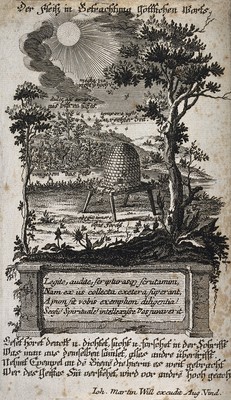 Der Fleiß in Betrachtung Göttlichen Worts.
Legite, audite, scripturasq; scrutamini,
Nam ex iis collecta exetera superant,
Apum sit vobis exemplum diligentia
Sensū Spiritualē intellexisse Vos juverit.
Leset höret denckt u. dichtet, sucht u. forschet in der Schrifft
Was man aus derselben samlet, alles andre übertrifft.
Nehmt Exempel an den Bienē die hierin̄ es weit gebracht
Wer des Geistes Sin̄ verstehet, wird vor andre hoch geacht
Joh. Martin Will excudit Aug. Vind.